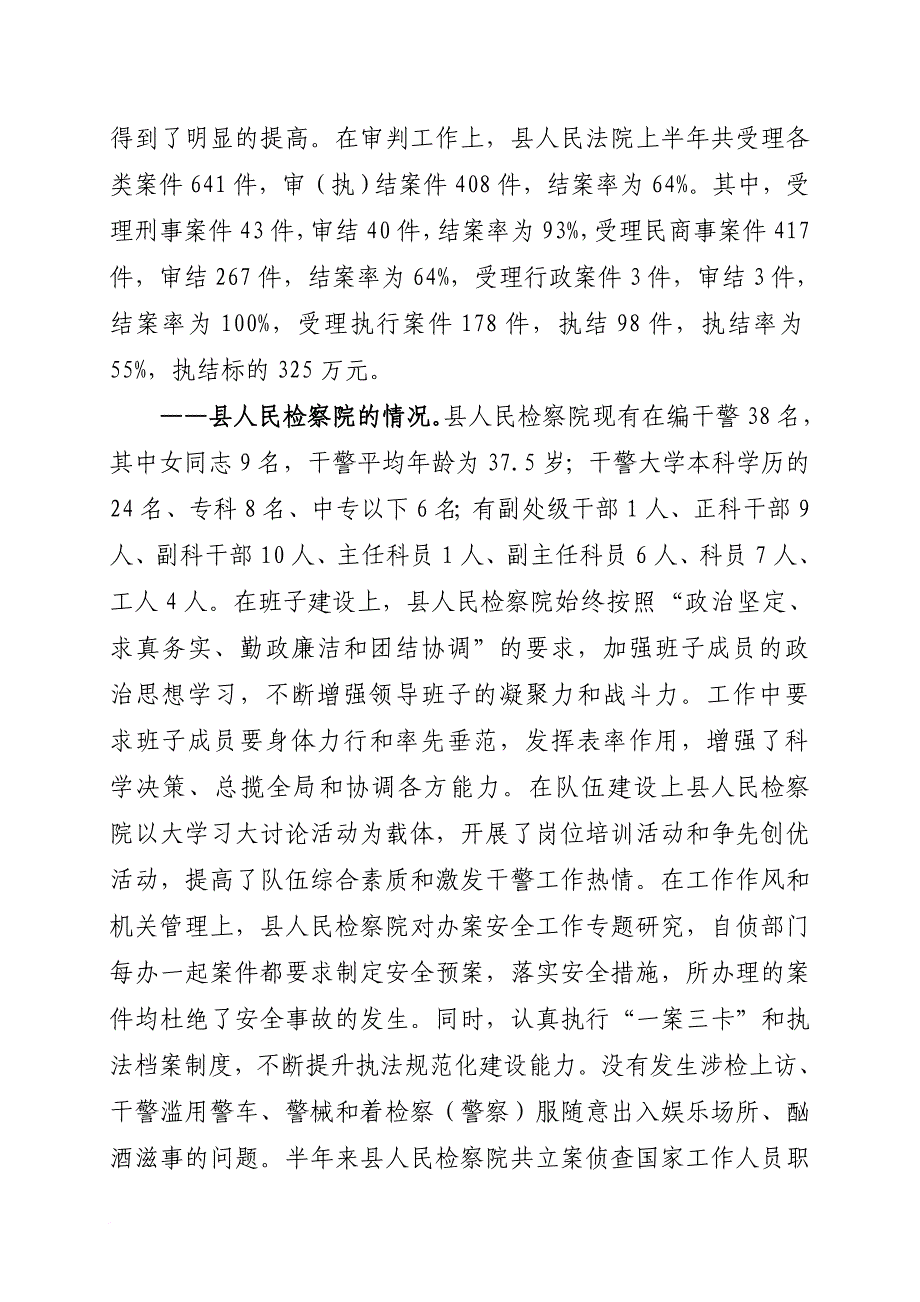 得到了明显的提高。在审判工作上，县人民法院上半年共受理各
类案件641件，审（执）结案件408件，结案率为64%。其中，受
理刑事案件43件，审结40件，结案率为93%，受理民商事案件417
件，审结267件，结案率为64%，受理行政案件3件，审结3件，
结案率为100%，受理执行案件178件，执结98件，执结率为
55%，执结标的325万元。
——县人民检察院的情况。县人民检察院现有在编干警38名，
其中女同志9名，干警平均年龄为37.5岁；干警大学本科学历的
24名、专科8名、中专以下6名；有副处级干部1人、正科干部9
人、副科干部10人、主任科员1人、副主任科员6人、科员7人、
工人4人。在班子建设上，县人民检察院始终按照“政治坚定、
求真务实、勤政廉洁和团结协调”的要求，加强班子成员的政
治思想学习，不断增强领导班子的凝聚力和战斗力。工作中要
求班子成员要身体力行和率先垂范，发挥表率作用，增强了科
学决策、总揽全局和协调各方能力。在队伍建设上县人民检察
院以大学习大讨论活动为载体，开展了岗位培训活动和争先创优
活动，提高了队伍综合素质和激发干警工作热情。在工作作风和
机关管理上，县人民检察院对办案安全工作专题研究，自侦部门
每办一起案件都要求制定安全预案，落实安全措施，所办理的案
件均杜绝了安全事故的发生。同时，认真执行“一案三卡”和执
法档案制度，不断提升执法规范化建设能力。没有发生涉检上访、
干警滥用警车、警械和着检察（警察）服随意出入娱乐场所、酗
酒滋事的问题。半年来县人民检察院共立案侦查国家工作人员职